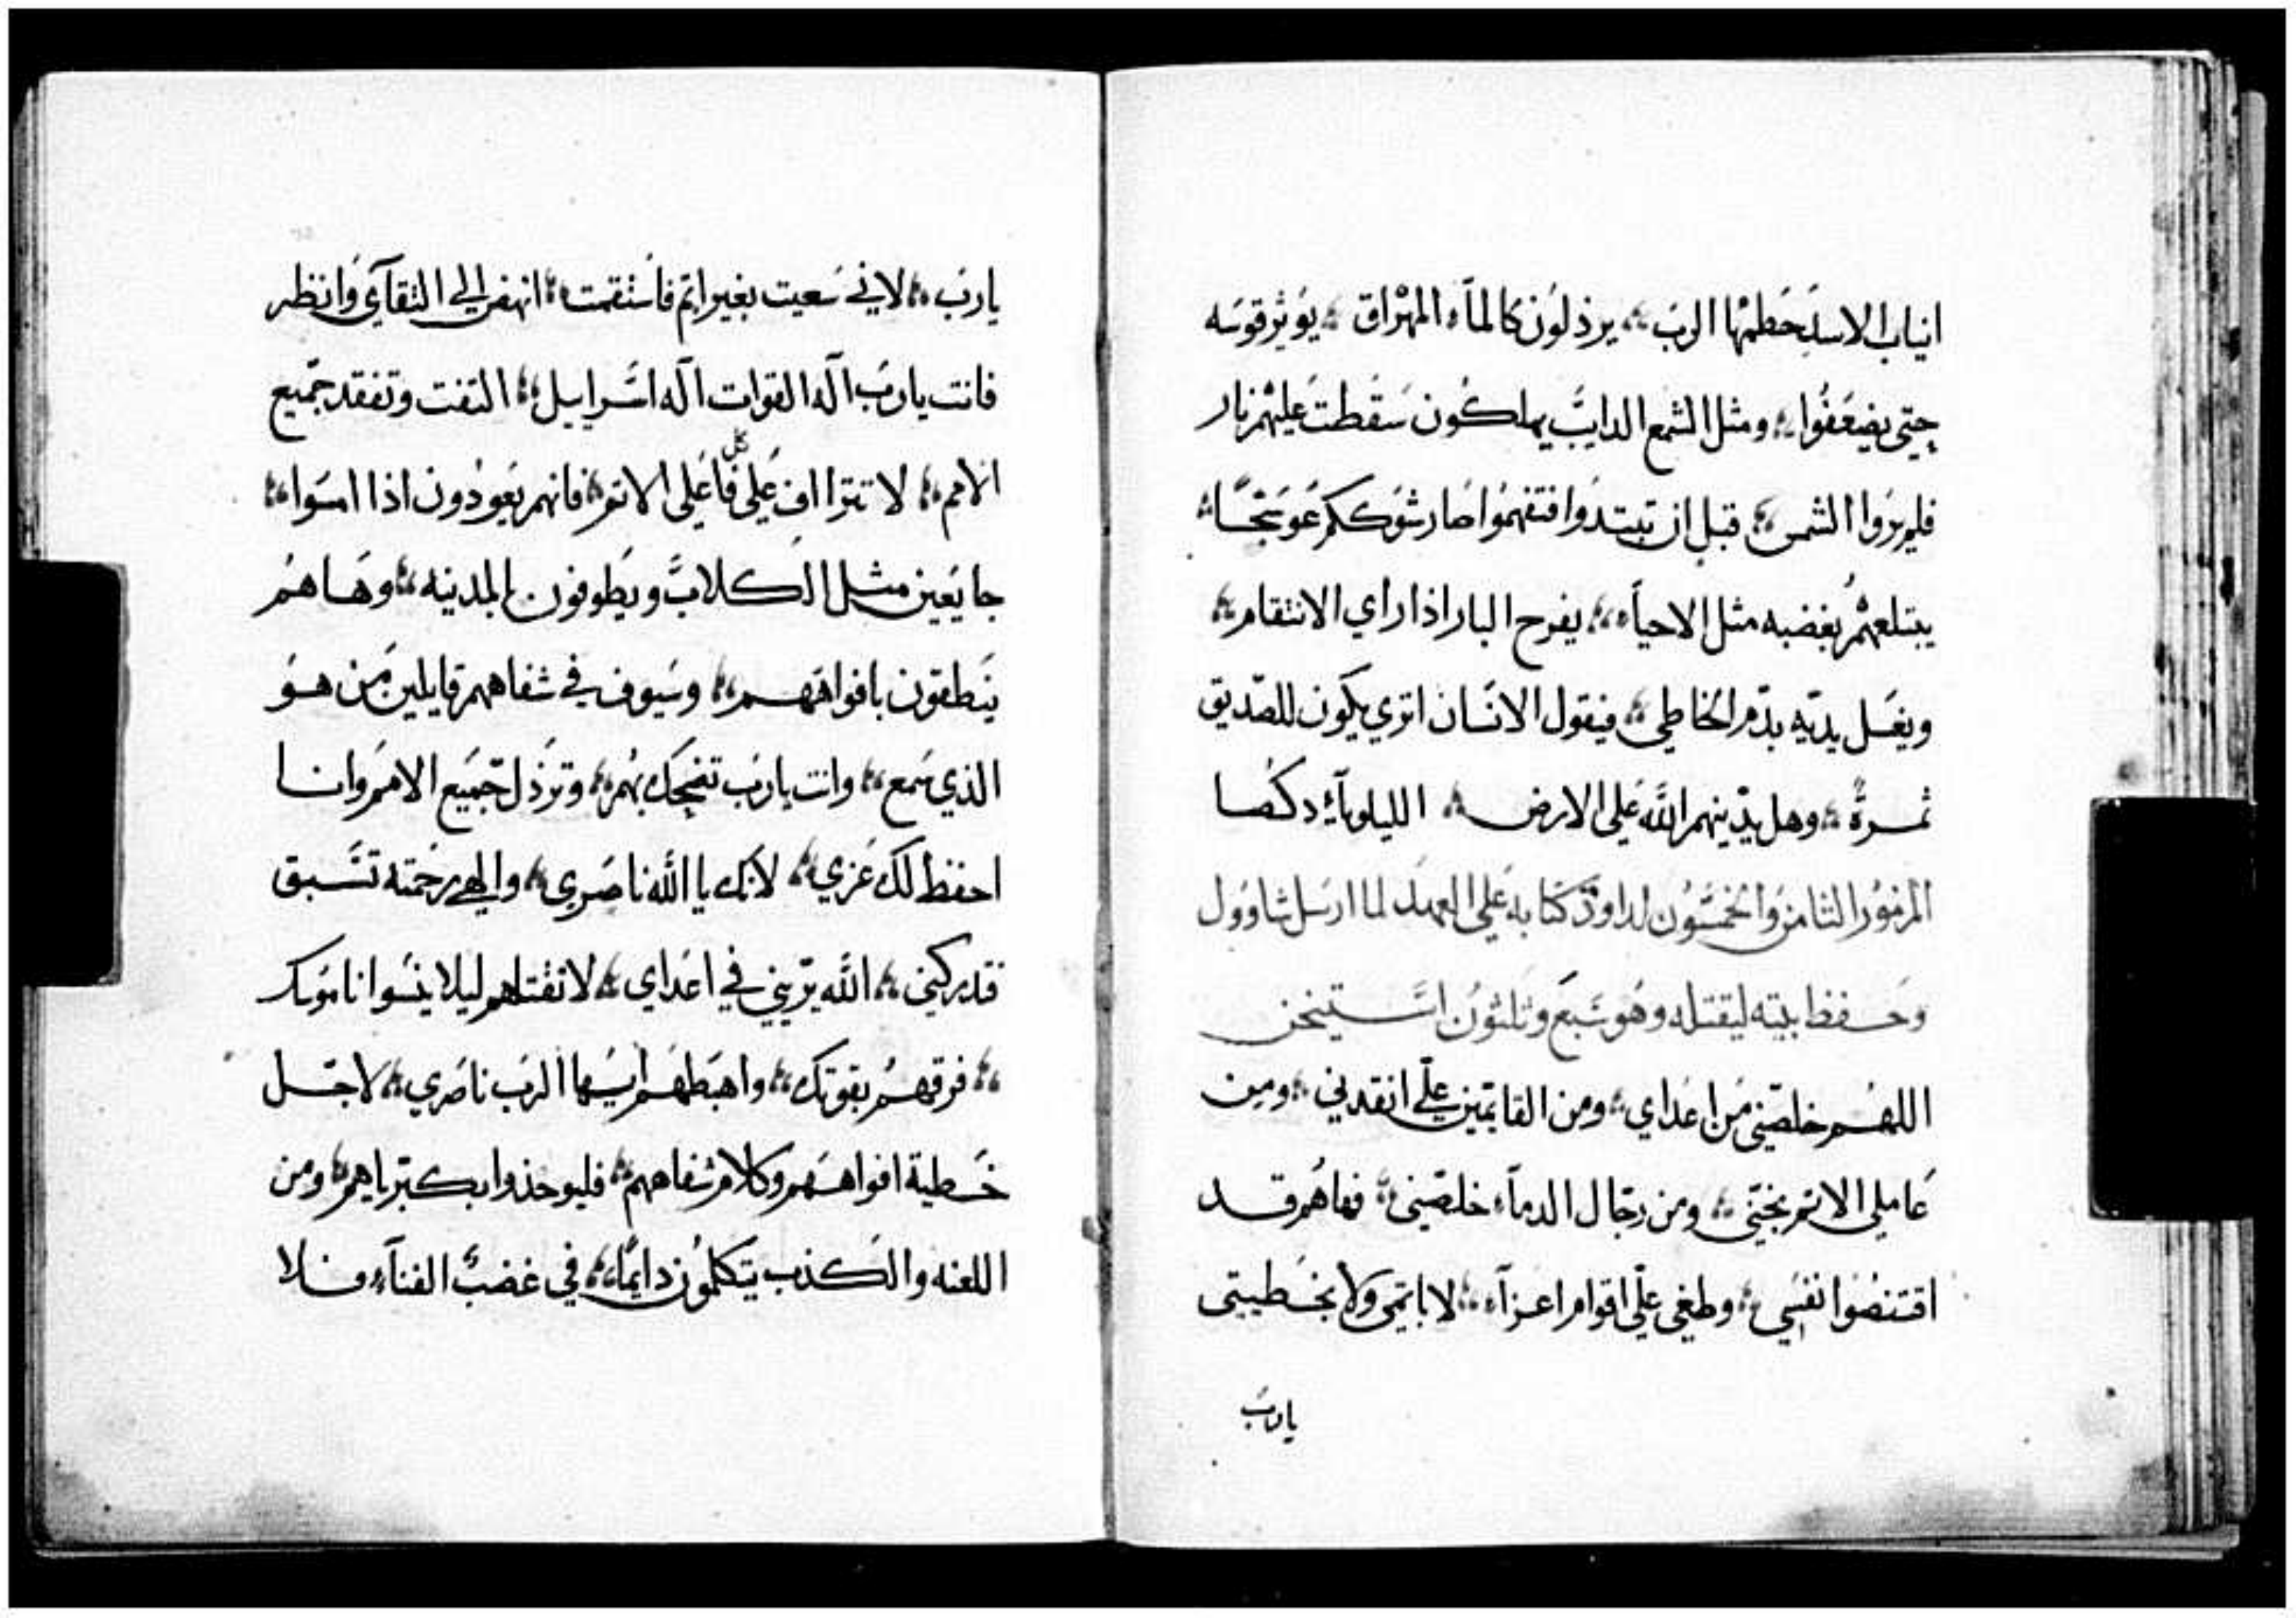 انياب الاسد حطمها الرب ؞ يرذلون كالمآء المهراق ؞ يوثر قوسه
حتى يضعفوا ؞ ومثل الشمع الدايب يهلكون سقطت عليهم نار
فلم يروا الشمس ؞ قبل ان تبتدوا فتفهموا صار شوككم عوسجًا ؞
يبتلعهم بغضبه مثل الاحيآء ؞ يفرح البار اذا راي الانتقام ؞
ويغسل يديه بدم الخاطي ؞ فيقول الانسان اتري يكون للصديق
ثمرة ؞ وهل يدينهم الله علي الارض ؞ الليلويآء دكصا
المزمور الثامن والخمسون لداود كتابه علي العمد لما ارسل شاوول
وحفظ بيته ليقتله وهو سبع وثلثون استيخن
اللهم خلصني من اعداي ؞ ومن القايمين علي انقدني ؞ ومن
عاملي الاثم نجني ؞ ومن رجال الدمآء خلصني ؞ فها هم قد
اقتنصوا نفسي ؞ وطغي علي اقوام اعزآء ؞ لا باثمي ولا بخطيتي
يارب
يارب ؞ لاني سعيت بغير اثم فاستقمت ؞ انهض الي التقآي وانظر
فانت يارب اله القوات اله اسرايل ؞ التفت وتفقد جميع
الامم ؞ لا تترااف علي كل فاعلي الاثم ؞ فانهم يعودون اذا امسوا ؞
جايعين مثل الكلاب ويطوفون المدينه ؞ وها هم
ينطقون بافواههم ؞ وسيوف في شفاههم قايلين من هو
الذي سمع ؞ وانت يارب تضحك بهم ؞ وترذل جميع الامم وانا
احفظ لك عزي ؞ لانك يا الله ناصري ؞ والهي رحمته تسبق
فتدركني ؞ الله يريني في اعداي ؞ لا تقتلهم ليلا ينسوا ناموسك
؞ فرقهم بقوتك ؞ واهبطهم ايها الرب ناصري ؞ لاجل
خطية افواههم وكلام شفاههم ؞ فليوخذوا بكبرياهم ؞ ومن
اللعنه والكذب يتكلمون دايمًا ؞ في غضب الفنآء فلا